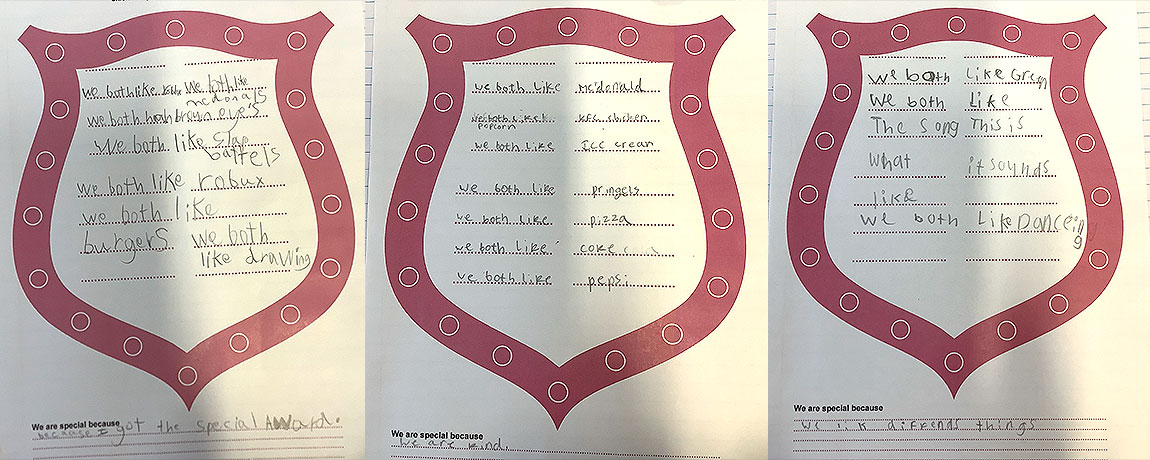 we both like we both like
mcdonals
we both hah brown eye's
we both like slap
battels
we both like robux
we both like
burgers we both
like drawing
We are special because
because I got the special Award.
we both like mcdonald
we both like kfc chicken
popcorn
we both like Ice cream
we both like pringels
we both like pizza
we both like coke
we both like pepsi
We are special because
we are kind.
we both like Green
we both like
The song This is
what it sounds
like
we both Like Danceing
We are special because
we lik diffrends things